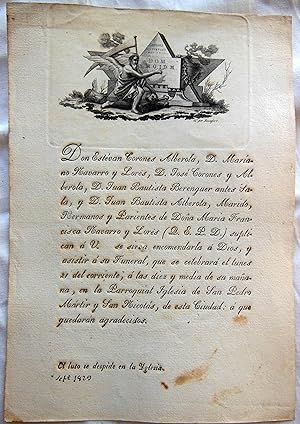 DOM
Don Estévan Corones Alberola, D. Maria-
no Navarro y Lorés, D. José Corones y Al-
berola, D. Juan Bautista Berenguer antes Sa-
la, y D. Juan Bautista Alberola, Marido,
Hermanos y Parientes de Doña Maria Fran-
cisca Navarro y Lorés (Q. E. P. D.) supli-
can á V. se sirva encomendarla á Dios, y
asistir á su Funeral, que se celebrará el lunes
21 del corriente, á las diez y media de su maña-
na, en la Parroquial Iglesia de San Pedro
Martir y San Nicolás, de esta Ciudad: á que
quedarán agradecidos.
El luto se despide en la Yglesia.
Sept. 1829